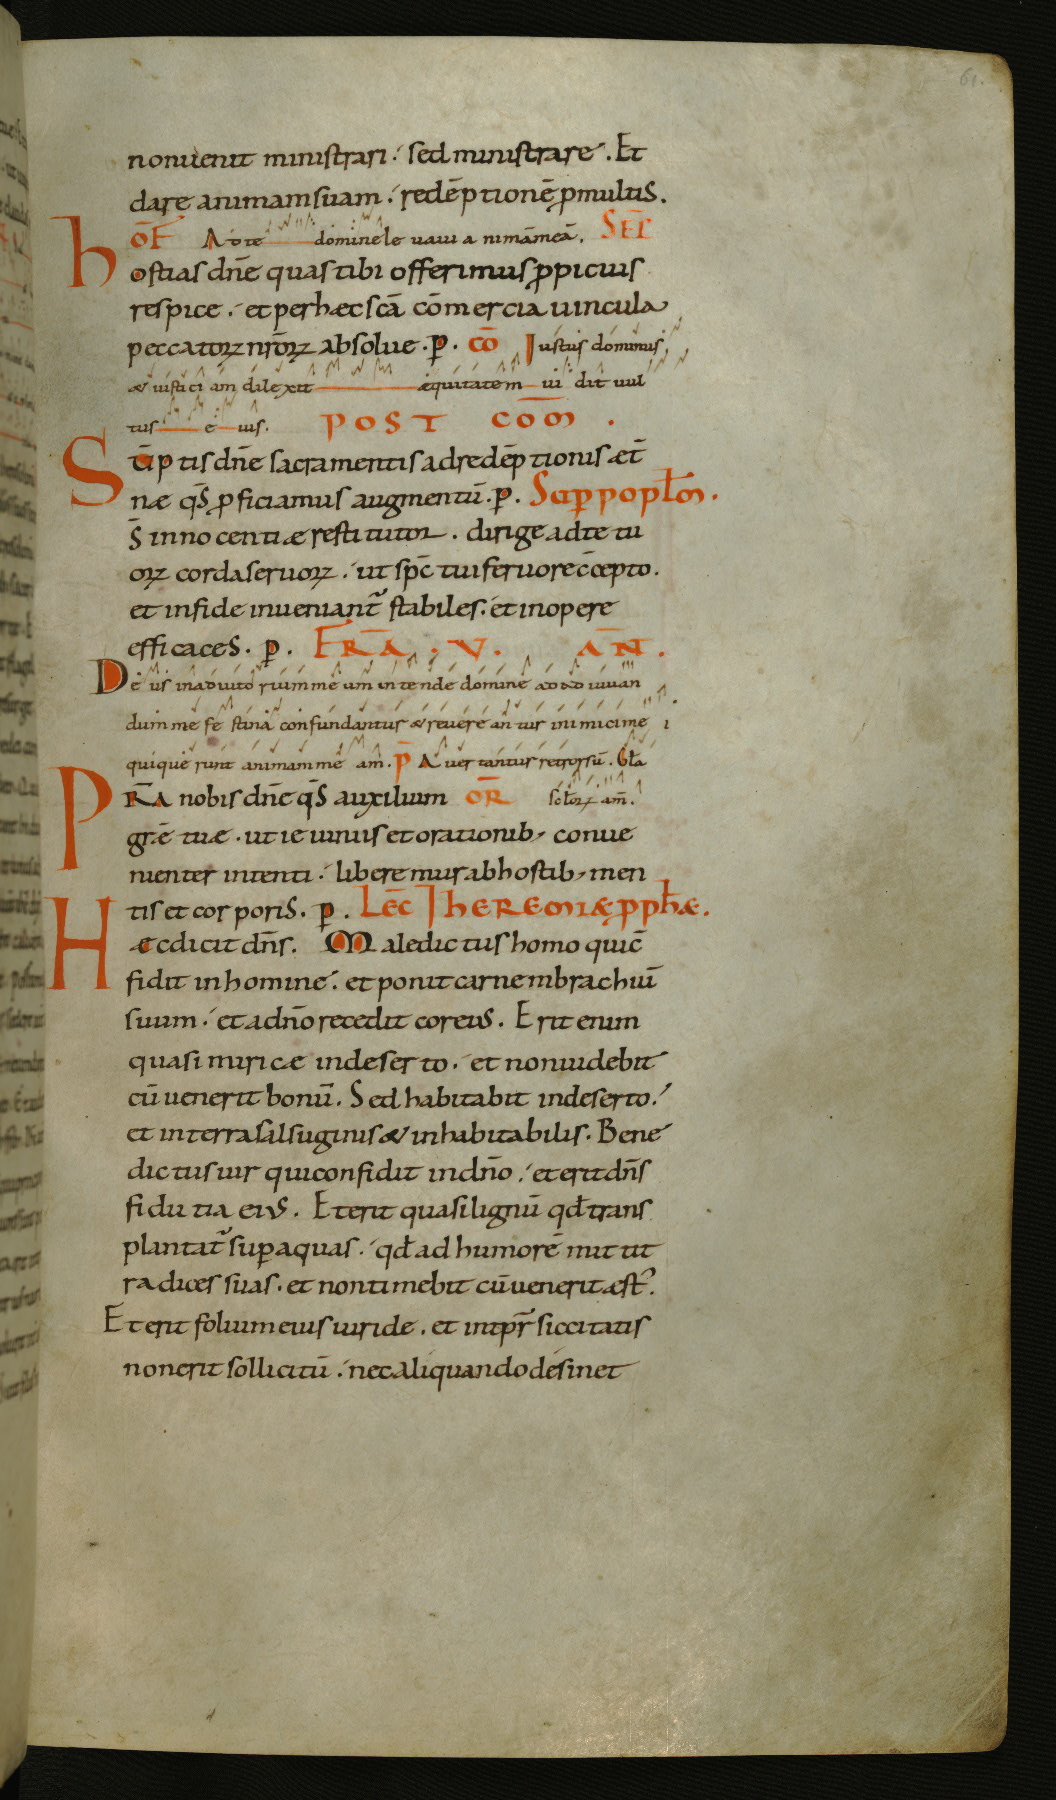 61.
non uenit ministrari. sed ministrare. Et
dare animam suam. redēptionē p multis.
OF Ad te domine leuaui animā meā. SEC
Hostias dn̄e quas tibi offerimus ppicius
respice. et per hæc scā cōmercia uincula
peccatorꝝ nr̄orꝝ absolue. p. CŌ Iustus dominus
& iusticiam dilexit equitatem uidit uul
tus eius. POST COM̄.
Sūptis dn̄e sacramentis ad redēptionis æt̄
næ qs̄ pficiamus augmentū. p. Sup popl̄m.
Ds̄ innocentiæ restitutor. dirige ad te tu
orꝝ corda seruorꝝ. ut sp̄c tui feruore c̄cepto.
et in fide inueniant̄ stabiles. et in opere
efficaces. p. FR̄A. V. AN̄.
Deus in adiutorium meum intende domine ad adiuuan
dum me festina confundantur & reuereantur inimici me i
qui querunt animam meam. p̄ Auertantur retrorsū. Gl̄a
PRA nobis dn̄e qs̄ auxilium OR̄ sclorꝝ am̄.
grē tuæ. ut ieiuniis et orationib; conue
nienter intenti. liberemur ab hostib; men
tis et corporis. p. LEC̄ IHEREMIÆ PPHÆ.
Hæc dicit dn̄s. Maledictus homo qui c̄
fidit in homine. et ponit carnem brachiū
suum. et a dn̄o recedit cor eius. Erit enim
quasi miricæ in deserto. et non uidebit
cū uenerit bonū. Sed habitabit in deserto.
et in terra salsuginis & inhabitabilis. Bene
dictus uir qui confidit in dn̄o. et erit dn̄s
fidutia eius. Et erit quasi lignū qd̄ trans
plantat̄ sup aquas. qd̄ ad humorē mittit
radices suas. et non timebit cū uenerit æst̄.
Et erit folium eius uiride. et in tp̄r siccitatis
non erit sollicitū. nec aliquando desinet